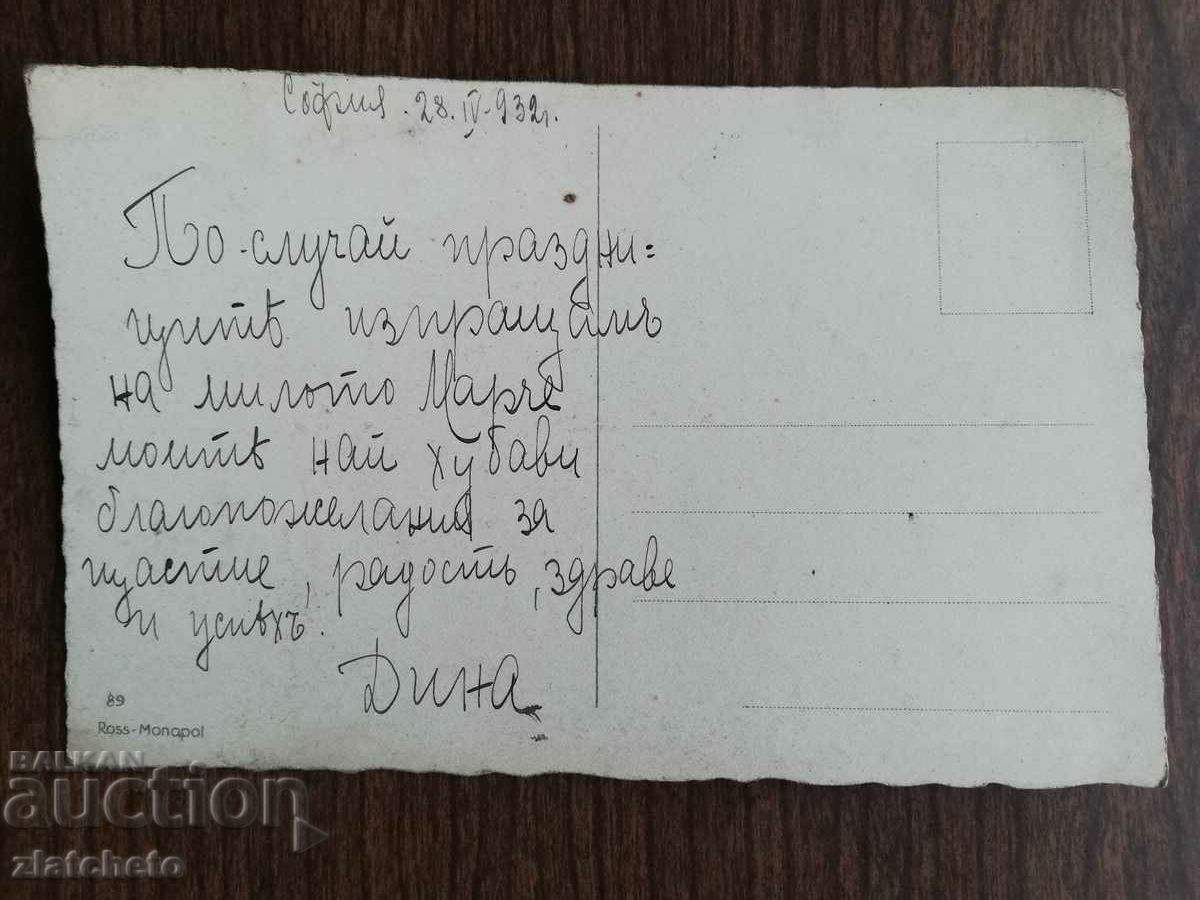 София. 28.IV-932г.
По-случай праздни=
цитѣ изпращамъ
на милото Марче
моитѣ най хубави
благопожелания за
щастие, радость, здраве
и успѣхъ.
Дина
89
Ross-Monapol
BALKAN
auction
zlatcheto